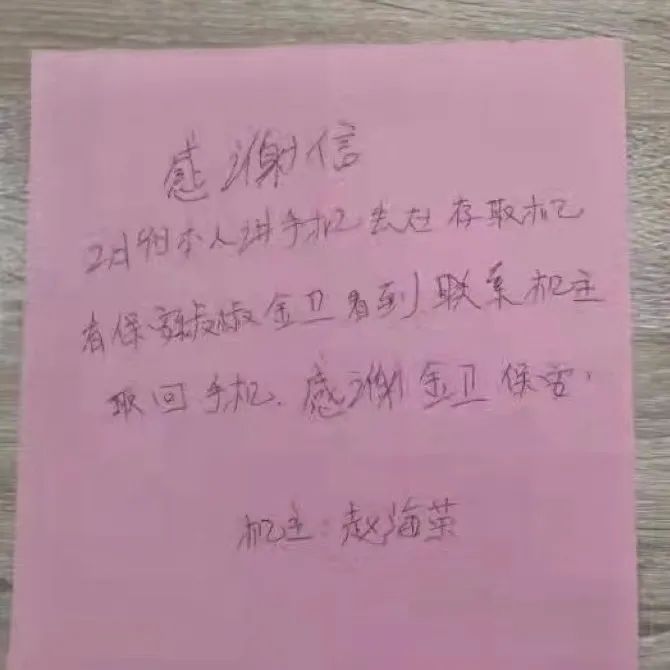 感谢信
2月9日本人讲手机丢在存取机
有保安 金卫看到联系机主
取回手机.感谢金卫保安.
机主:赵海荣